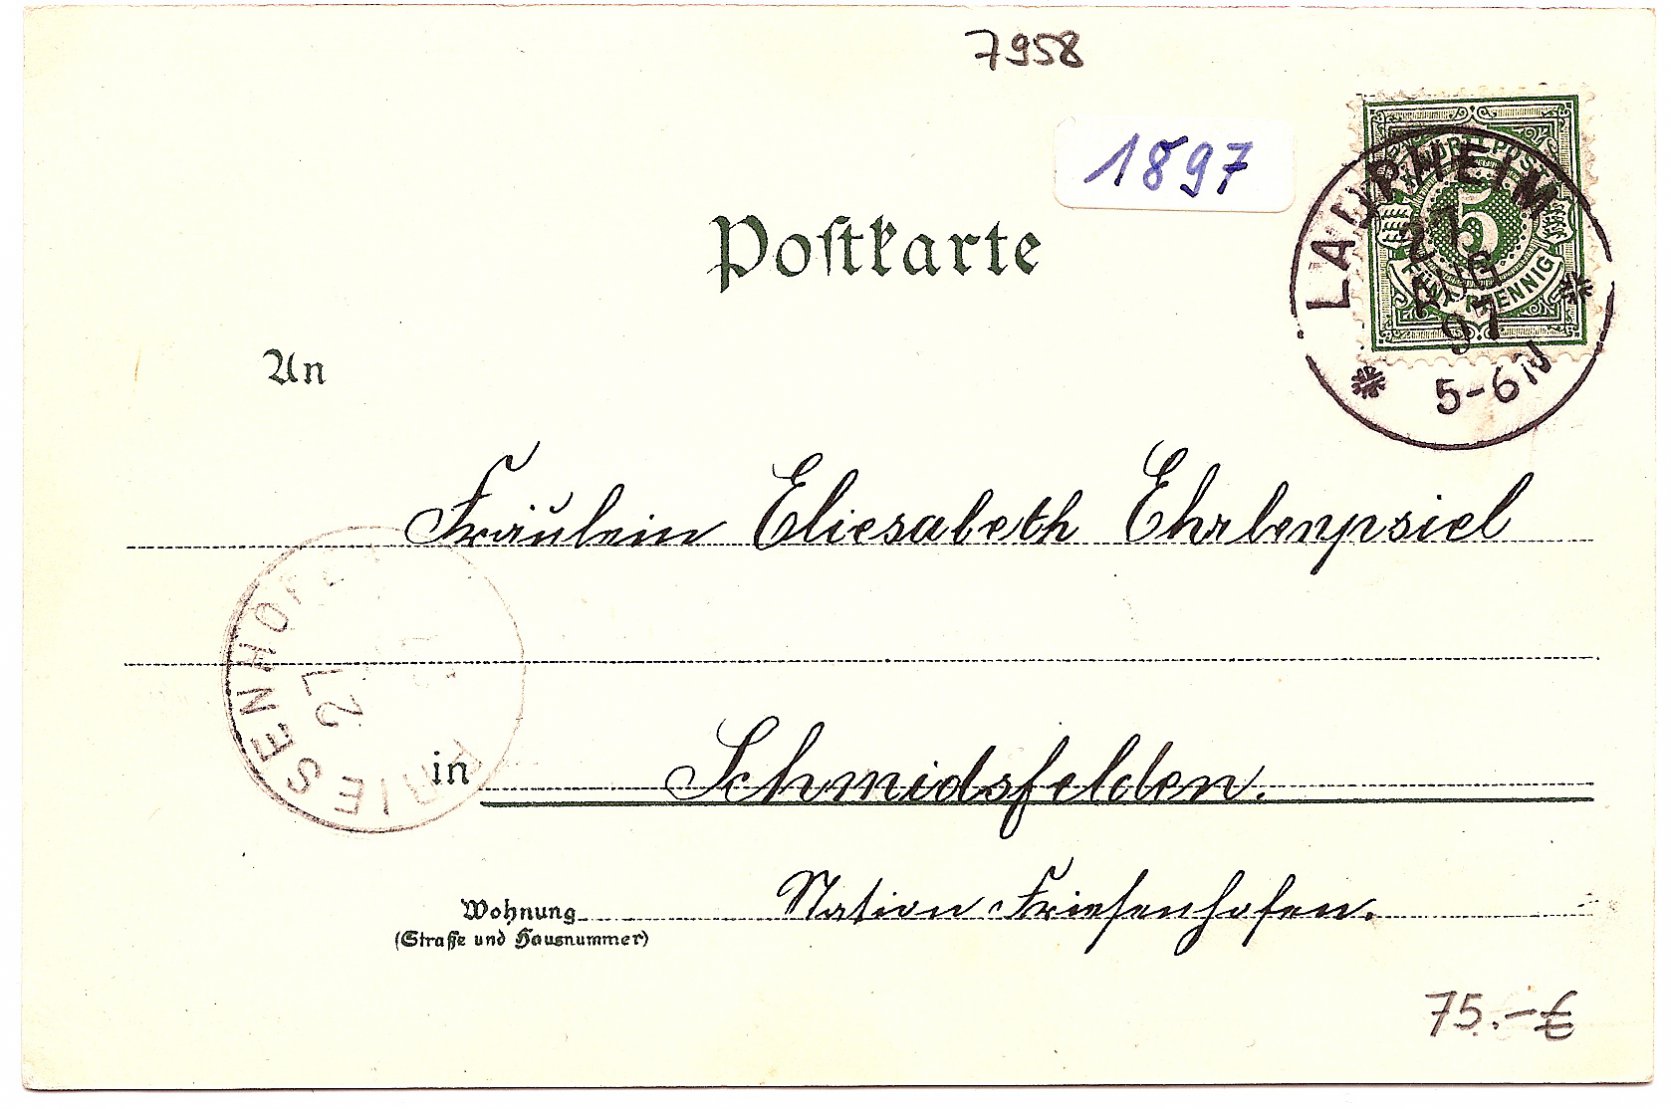 7958
1897
WÜRTT. POST
5
FÜNF PFENNIG
LAUPHEIM
27
AUG
97
5-6N
Postkarte
An
Fräulein Eliesabeth Ehrlenspiel
FRIESENHOFEN
27
in Schmidsfelden.
Wohnung Station Friesenhofen.
(Straße und Hausnummer)
75.-€